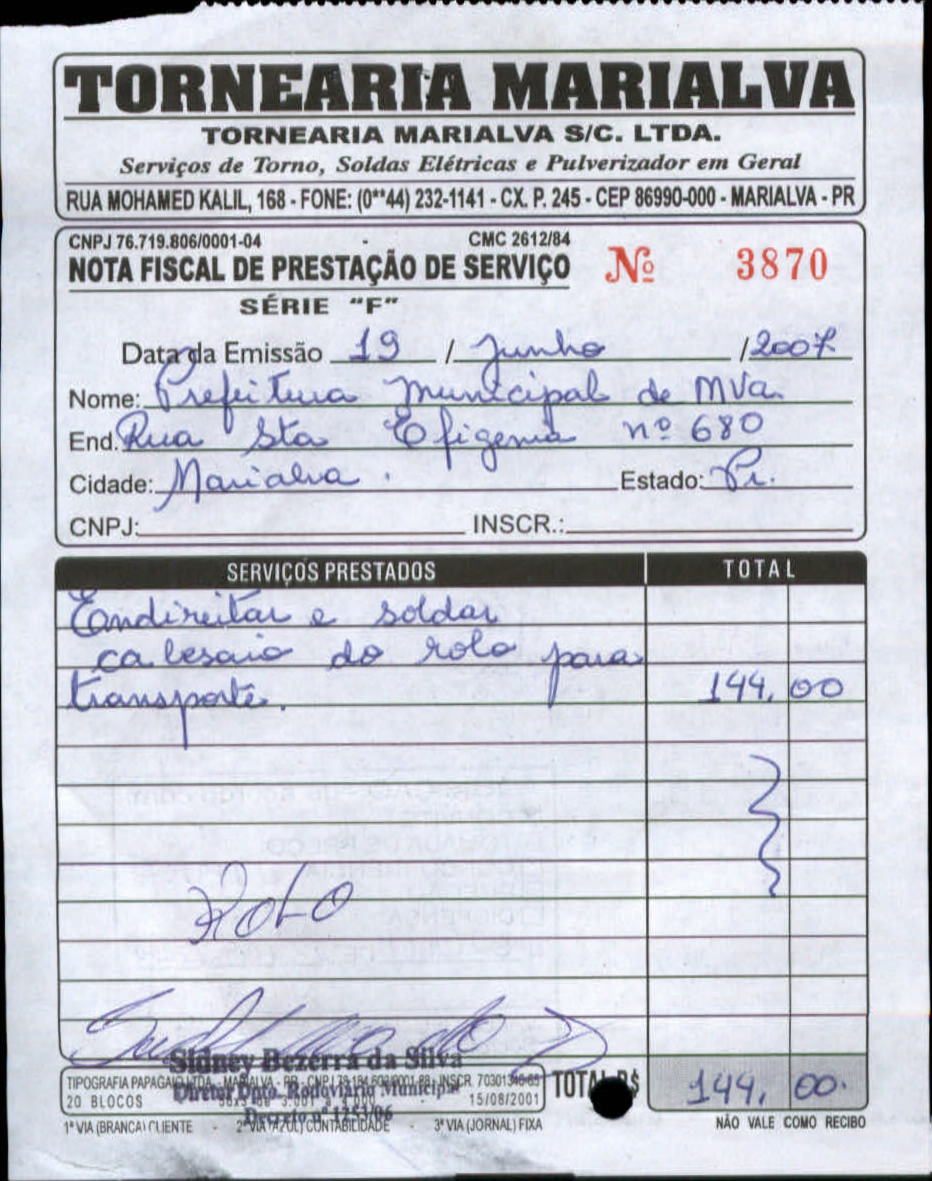 TORNEARIA MARIALVA
TORNEARIA MARIALVA S/C. LTDA.
Serviços de Torno, Soldas Elétricas e Pulverizador em Geral
RUA MOHAMED KALIL, 168 - FONE: (0**44) 232-1141 - CX. P. 245 - CEP 86990-000 - MARIALVA - PR
CNPJ 76.719.806/0001-04 - CMC 2612/84
NOTA FISCAL DE PRESTAÇÃO DE SERVIÇO Nº 3870
SÉRIE "F"
Data da Emissão 19 / Junho /2007
Nome: Prefeitura Municipal de MVa
End. Rua Sta Efigenia nº 680
Cidade: Marialva. Estado: Pr.
CNPJ: INSCR.:
SERVIÇOS PRESTADOS TOTAL
Endireitar e soldar
cabesaio do rolo para
transporte. 144,00
ROLO
Sidney Bezerra da Silva
TIPOGRAFIA PAPAGAIO LTDA. - MARIALVA - PR - CNPJ INSCR.
Diretor Dpto. Rodoviário Municipal
20 BLOCOS 15/08/2001 TOTAL R$ 144,00.
Decreto nº 1253/06
1ª VIA (BRANCA) CLIENTE - 2ª VIA (AZUL) CONTABILIDADE - 3ª VIA (JORNAL) FIXA NÃO VALE COMO RECIBO